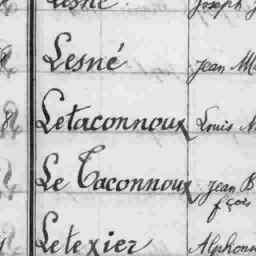 Lesné Joseph
Lesné Jean M
Letaconnoux Louis
Le Taconnoux Jean B
fçois
Letexier Alphons